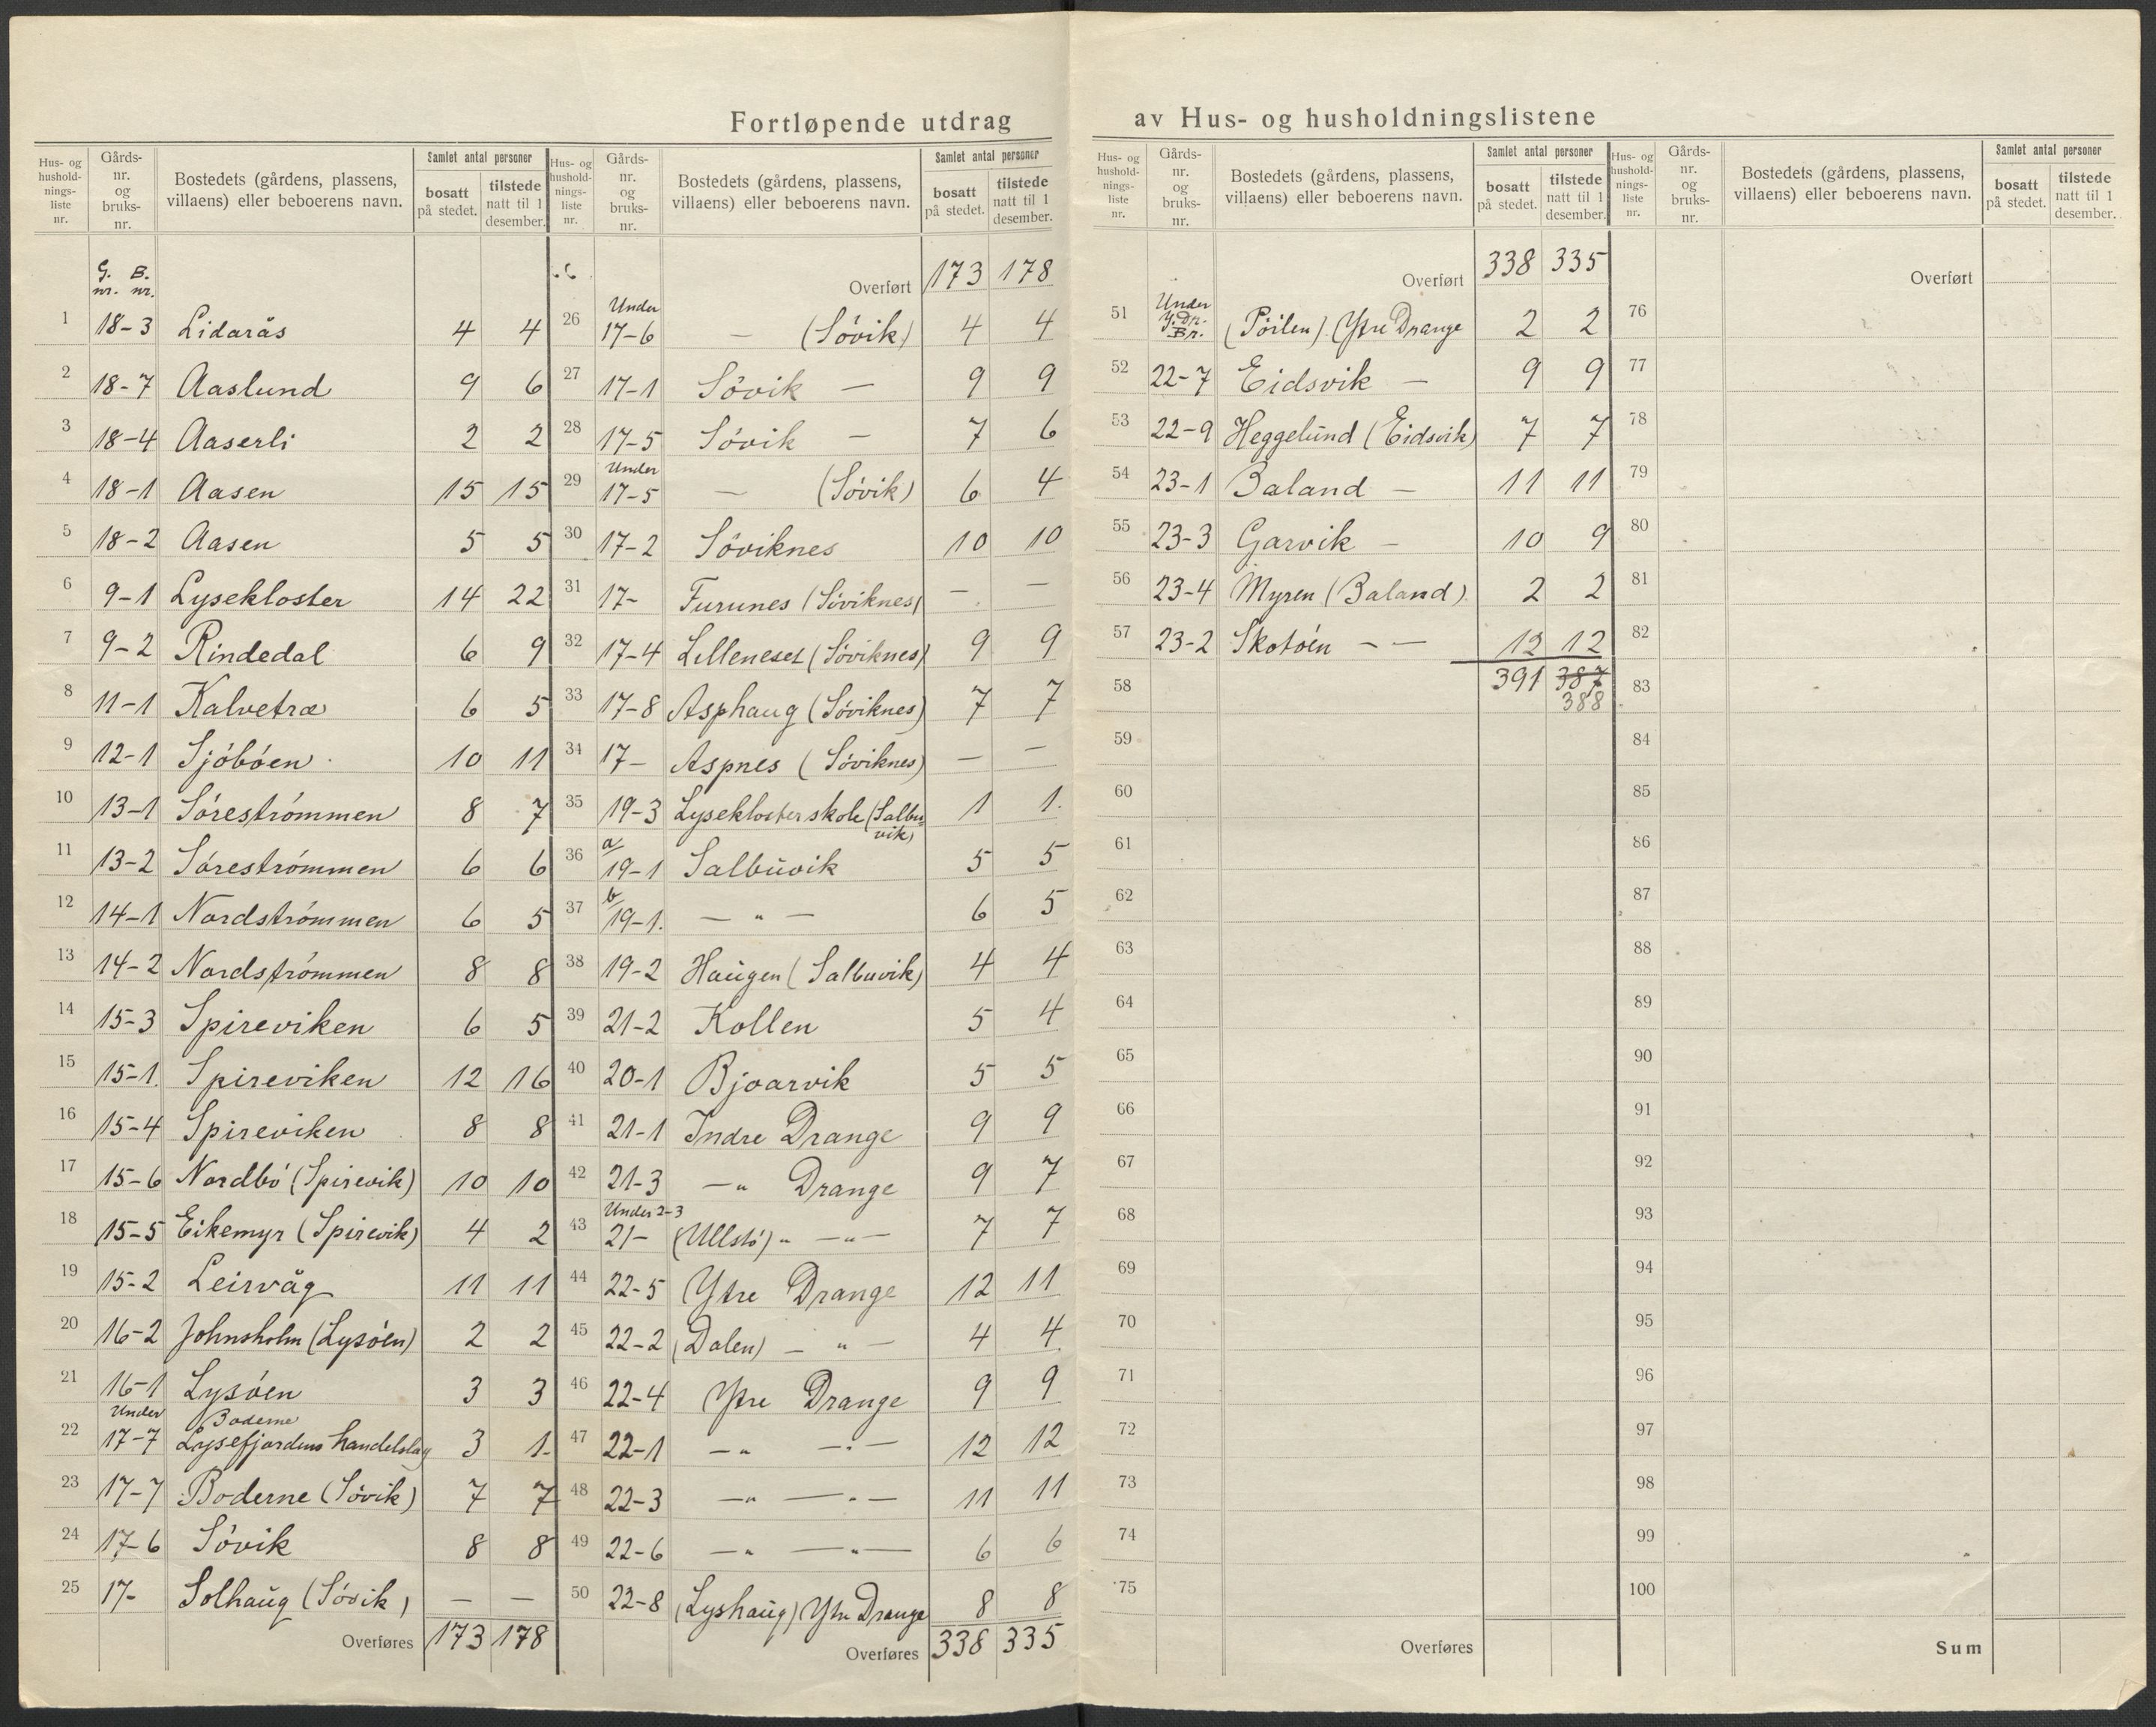 Fortløpende utdrag av Hus- og husholdningslistene
Hus- og hushold-nings-liste nr. | Gårds-nr. og bruks-nr. | Bostedets (gårdens, plassens, villaens) eller beboerens navn. | Samlet antal personer | bosatt på stedet. | tilstede natt til 1 desember.
G. nr. B. nr.
1 18-3 Lidarås 4 4
2 18-7 Aaslund 9 6
3 18-4 Aaserli 2 2
4 18-1 Aasen 15 15
5 18-2 Aasen 5 5
6 9-1 Lysekloster 14 22
7 9-2 Rindedal 6 9
8 11-1 Kalvetræ 6 5
9 12-1 Sjöböen 10 11
10 13-1 Söreströmmen 8 7
11 13-2 Söreströmmen 6 6
12 14-1 Nordströmmen 6 5
13 14-2 Nordströmmen 8 8
14 15-3 Spireviken 6 5
15 15-1. Spireviken 12 16
16 15-4 Spireviken 8 8
17 15-6 Nordbö (Spirevik) 10 10
18 15-5 Eikemyr (Spirevik) 4 2
19 15-2 Leirvåg 11 11
20 16-2 Johnsholm (Lysöen) 2 2
21 16-1 Lysöen 3 3
22 Under 17-7 Boderne Lysefjordens handelslag 3 1.
23 17-7 Boderne (Sövik) 7 7
24 17-6 Sövik 8 8
25 17- Solhaug (Sövik) — —
Overføres 173 178
Hus- og hushold-nings-liste nr. | Gårds-nr. og bruks-nr. | Bostedets (gårdens, plassens, villaens) eller beboerens navn. | Samlet antal personer | bosatt på stedet. | tilstede natt til 1 desember.
Overført 173 178
26 Under 17-6 — (Sövik) 4 4
27 17-1 Sövik — 9 9
28 17-5 Sövik — 7 6
29 Under 17-5 — (Sövik) 6 4
30 17-2 Söviknes 10 10
31 17- Furunes (Söviknes) — —
32 17-4 Lilleneset (Söviknes) 9 9
33 17-8 Asphaug (Söviknes) 7 7
34 17- Aspnes (Söviknes) — —
35 19-3 Lysekloster skole (Salbuvik) 1 1.
36 a/19-1 Salbuvik 5 5
37 b/19-1. — " — 6 5
38 19-2 Haugen (Salbuvik) 4 4
39 21-2 Kollen 5 4
40 20-1 Bjoarvik 5 5
41 21-1 Indre Drange 9 9
42 21-3 — " Drange 9 7
43 Under 2-3 21- (Ullstö) " — " — 7 7
44 22-5 Ytre Drange 12 11
45 22-2 (Dalen) — " — 4 4.
46 22-4 Ytre Drange 9 9
47 22-1 — " — " — 12 12
48 22-3 — " — " — 11 11
49 22-6 — " — " — 6 6
50 22-8 (Lyshaug) Ytre Drange 8 8
Overføres 338 335
Hus- og hushold-nings-liste nr. | Gårds-nr. og bruks-nr. | Bostedets (gårdens, plassens, villaens) eller beboerens navn. | Samlet antal personer | bosatt på stedet. | tilstede natt til 1 desember.
Overført 338 335
51 Under Y. Dr. Br. (Pöilen) (Ytre Drange 2 2
52 22-7 Eidsvik — 9 9
53 22-9 Heggelund (Eidsvik) 7 7
54 23-1 Baland — 11 11
55 23-3 Garvik — 10 9
56 23-4 Myren (Baland) 2 2
57 23-2 Skotöen — — 12 12
58 391 387 388
59
60
61
62
63
64
65
66
67
68
69
70
71
72
73
74
75
Overføres
Hus- og hushold-nings-liste nr. | Gårds-nr. og bruks-nr. | Bostedets (gårdens, plassens, villaens) eller beboerens navn. | Samlet antal personer | bosatt på stedet. | tilstede natt til 1 desember.
Overført
76
77
78
79
80
81
82
83
84
85
86
87
88
89
90
91
92
93
94
95
96
97
98
99
100
Sum